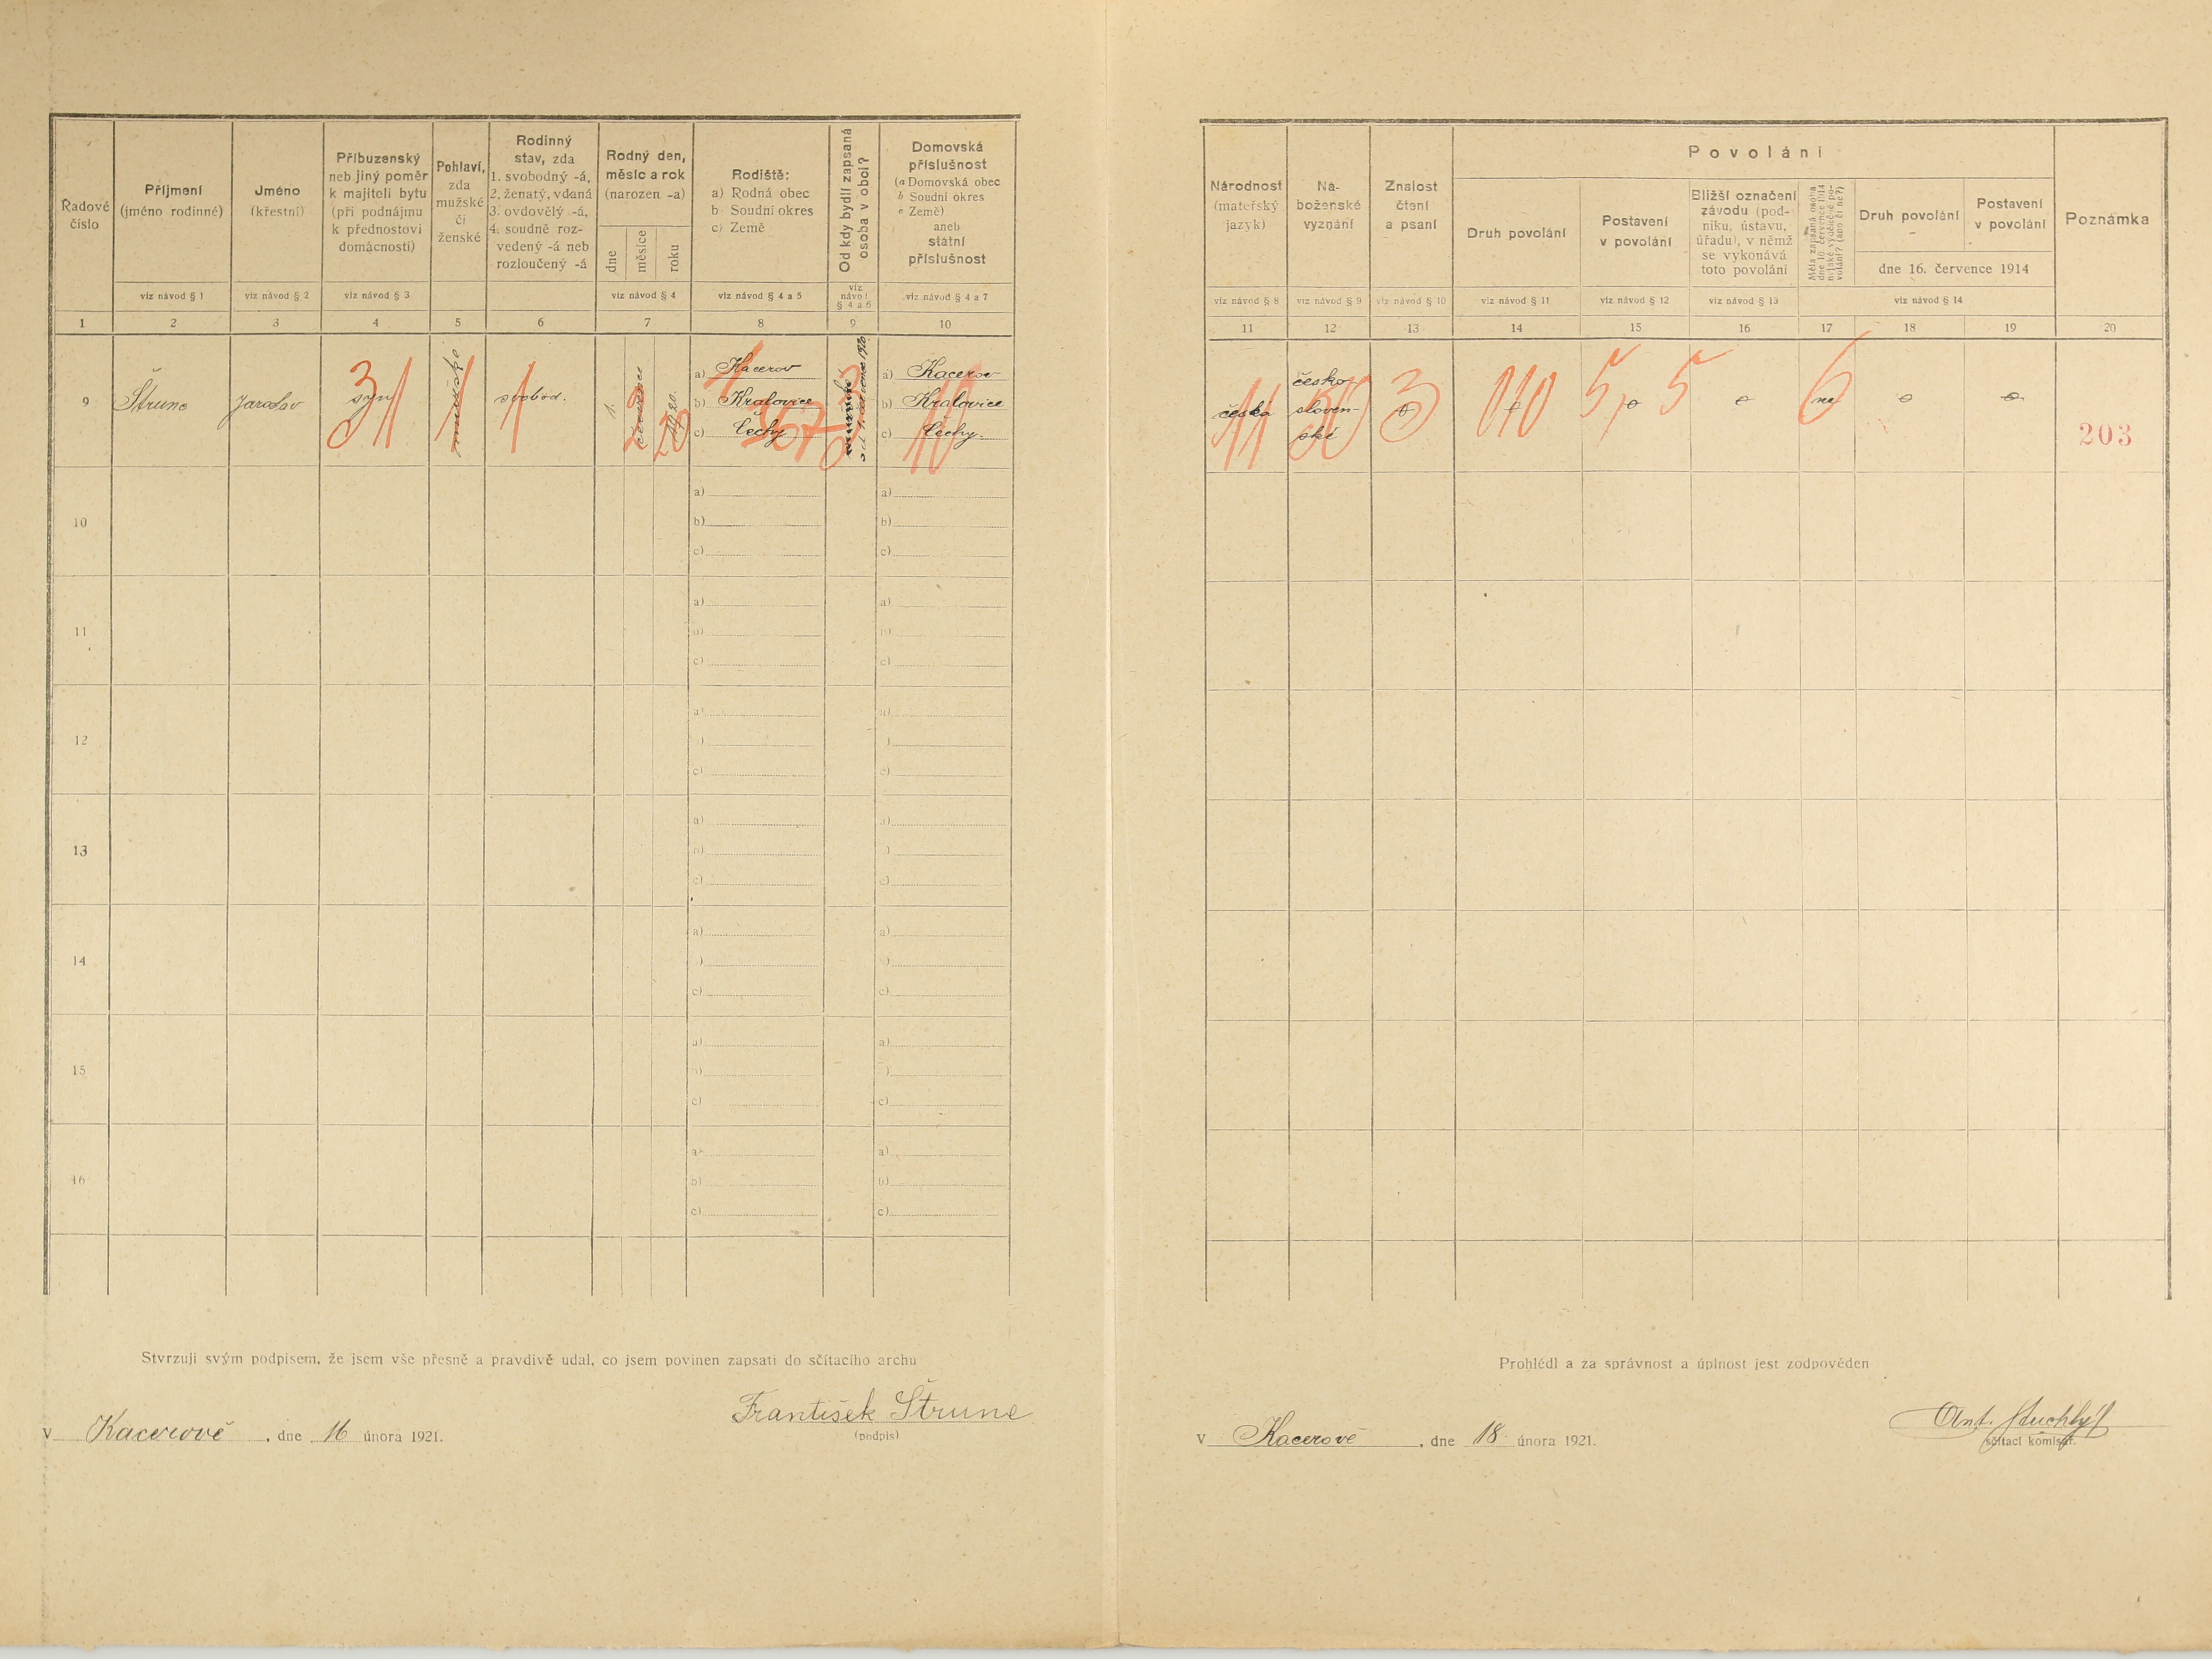 Řadové
číslo
Příjmení
(jméno rodinné)
Jméno
(křestní)
Příbuzenský
neb jiný poměr
k majiteli bytu
(při podnájmu
k přednostovi
domácnosti)
Pohlaví,
zda
mužské
či
ženské
Rodinný
stav, zda
1. svobodný -á,
2. ženatý, vdaná
3. ovdovělý -á,
4. soudně roz-
vedený -á neb
rozloučený -á
Rodný den,
měsíc a rok
(narozen -a)
dne
měsíce
roku
Rodiště:
a) Rodná obec
b) Soudní okres
c) Země
Od kdy bydlí zapsaná
osoba v obci?
Domovská
příslušnost
(a Domovská obec
b Soudní okres
c Země)
aneb
státní
příslušnost
viz návod § 1
viz návod § 2
viz návod § 3
viz návod § 4
viz návod § 4 a 5
viz
návod
§ 4 a 6
viz návod § 4 a 7
1 2 3 4 5 6 7 8 9 10
9 Štrunc Jaroslav syn mužské svobod. 1. července 1920.
31 1 1 2 20
a) Kacerov
b) Kralovice
c) Čechy
a) Kacerov
b) Kralovice
c) Čechy.
10
a)
b)
c)
a)
b)
c)
11
a)
c)
a)
c)
12
13
14
15
16
Stvrzuji svým podpisem, že jsem vše přesně a pravdivě udal, co jsem povinen zapsati do sčítacího archu
František Štrunc
(podpis)
v Kacerově, dne 16 února 1921.
Národnost
(mateřský
jazyk)
Ná-
boženské
vyznání
Znalost
čtení
a psaní
Povolání
Druh povolání
Postavení
v povolání
Bližší označení
závodu (pod-
niku, ústavu,
úřadu), v němž
se vykonává
toto povolání
Měla zapsaná osoba
dne 16. července 1914
nějaké výdělečné po-
volání? (ano či ne?)
Druh povolání
Postavení
v povolání
dne 16. července 1914
Poznámka
viz návod § 8
viz návod § 9
viz návod § 10
viz návod § 11
viz návod § 12
viz návod § 13
viz návod § 14
11 12 13 14 15 16 17 18 19 20
česká
česko-
sloven-
ské
ne
11 3 5 5 6
203
Prohlédl a za správnost a úplnost jest zodpověden
v Kacerově, dne 18 února 1921.
Ant. Stuchlý
sčítací komisař.